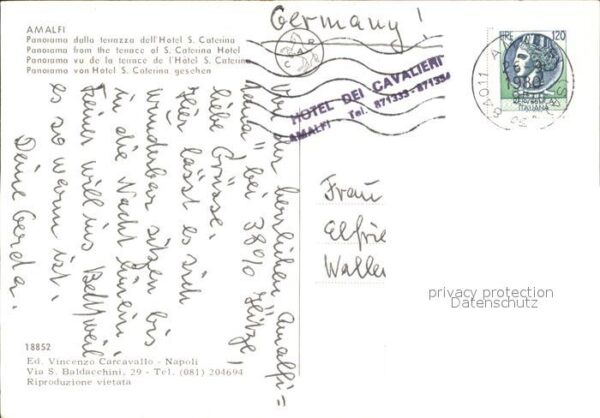 AMALFI
Panorama dalla terrazza dell'Hotel S. Caterina
Panorama from the terrace of S. Caterina Hotel
Panorama vu de la terrace de l'Hôtel S. Caterina
Panorama von Hotel S. Caterina gesehen
Germany!
LIRE 120
1980
84011
HOTEL DEI CAVALIERI
AMALFI Tel. 871333 - 87133
Von der herrlichen Amalfi=
bei 38% Hitze!
liebe Grüsse.
Hier lässt es sich
wunderbar sitzen bis
in die Nacht hinein.
Keiner will ins Bett, weil
es so warm ist.
Deine Gerda.
Frau
Elfrie
Walle
privacy protection
Datenschutz
18852
Ed. Vincenzo Carcavallo - Napoli
Via S. Baldacchini, 29 - Tel. (081) 204694
Riproduzione vietata